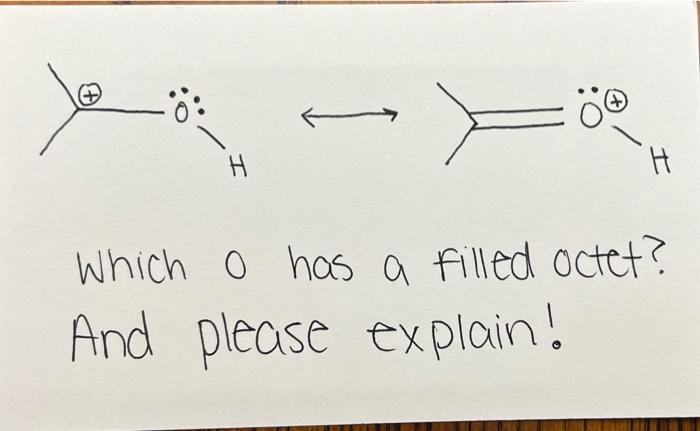 + O H O + H
Which O has a filled octet?
And please explain!